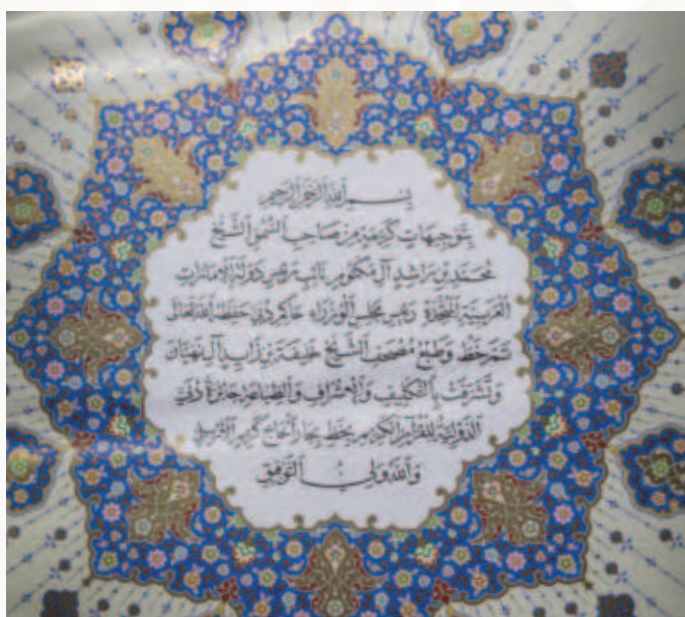 بسم الله الرحمن الرحيم
بتوجيهات كريمة من صاحب السمو الشيخ
محمد بن راشد آل مكتوم نائب رئيس دولة الإمارات
العربية المتحدة رئيس مجلس الوزراء حاكم دبي حفظه الله تعالى
تم خط وطبع مصحف الشيخ خليفة بن زايد آل نهيان
وتشرفت بالتكليف والإشراف والطباعة جائزة دبي
الدولية للقرآن الكريم بخط
والله ولي التوفيق